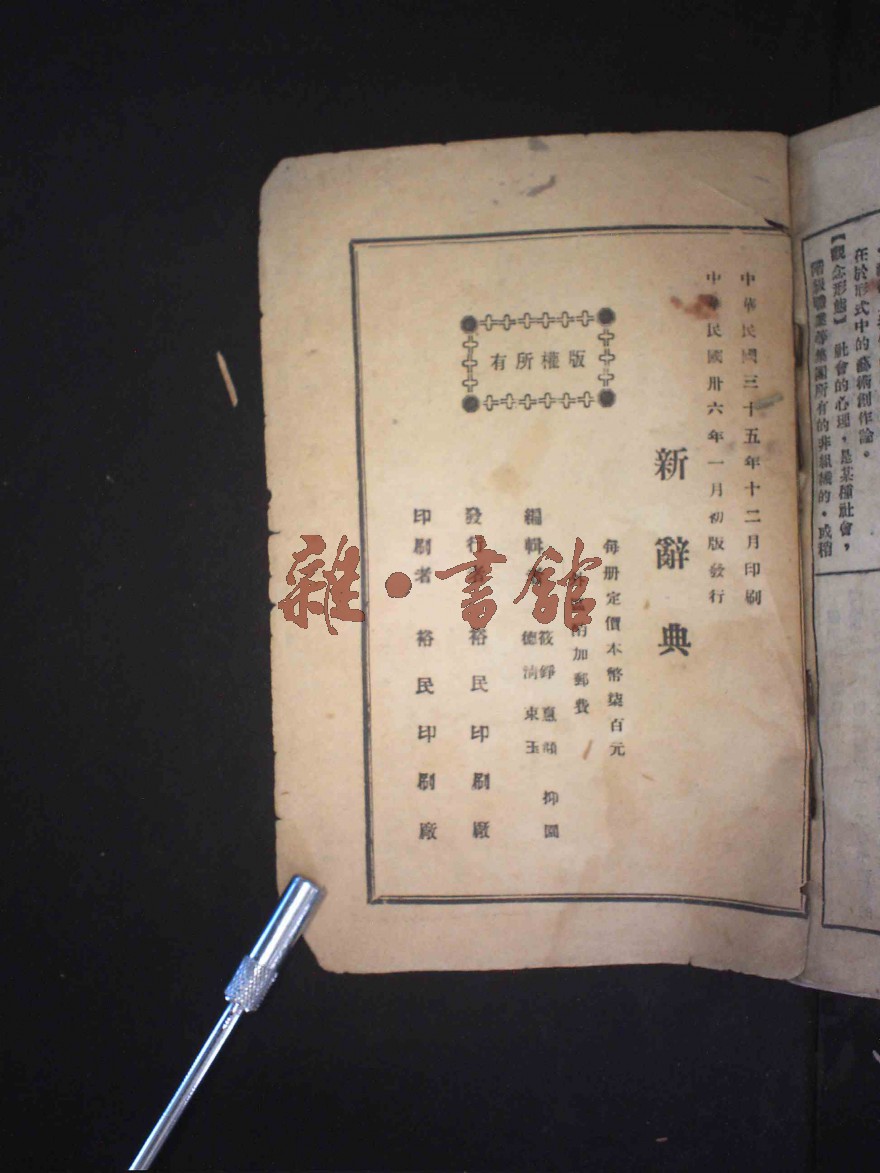 在於形式中的藝術創作論。
【觀念形態】 社會的心理,是某種社會,
階級職業等集團所有的非組織的,或稽
中華民國三十五年十二月印刷
中華民國卅六年一月初版發行
新辭典
每册定價本幣柒百元
外埠酌加郵費
編輯者
筱錚 惠 抑園
德清 東玉
發行者 裕民印刷廠
印刷者 裕民印刷廠
版權所有
雜·書館